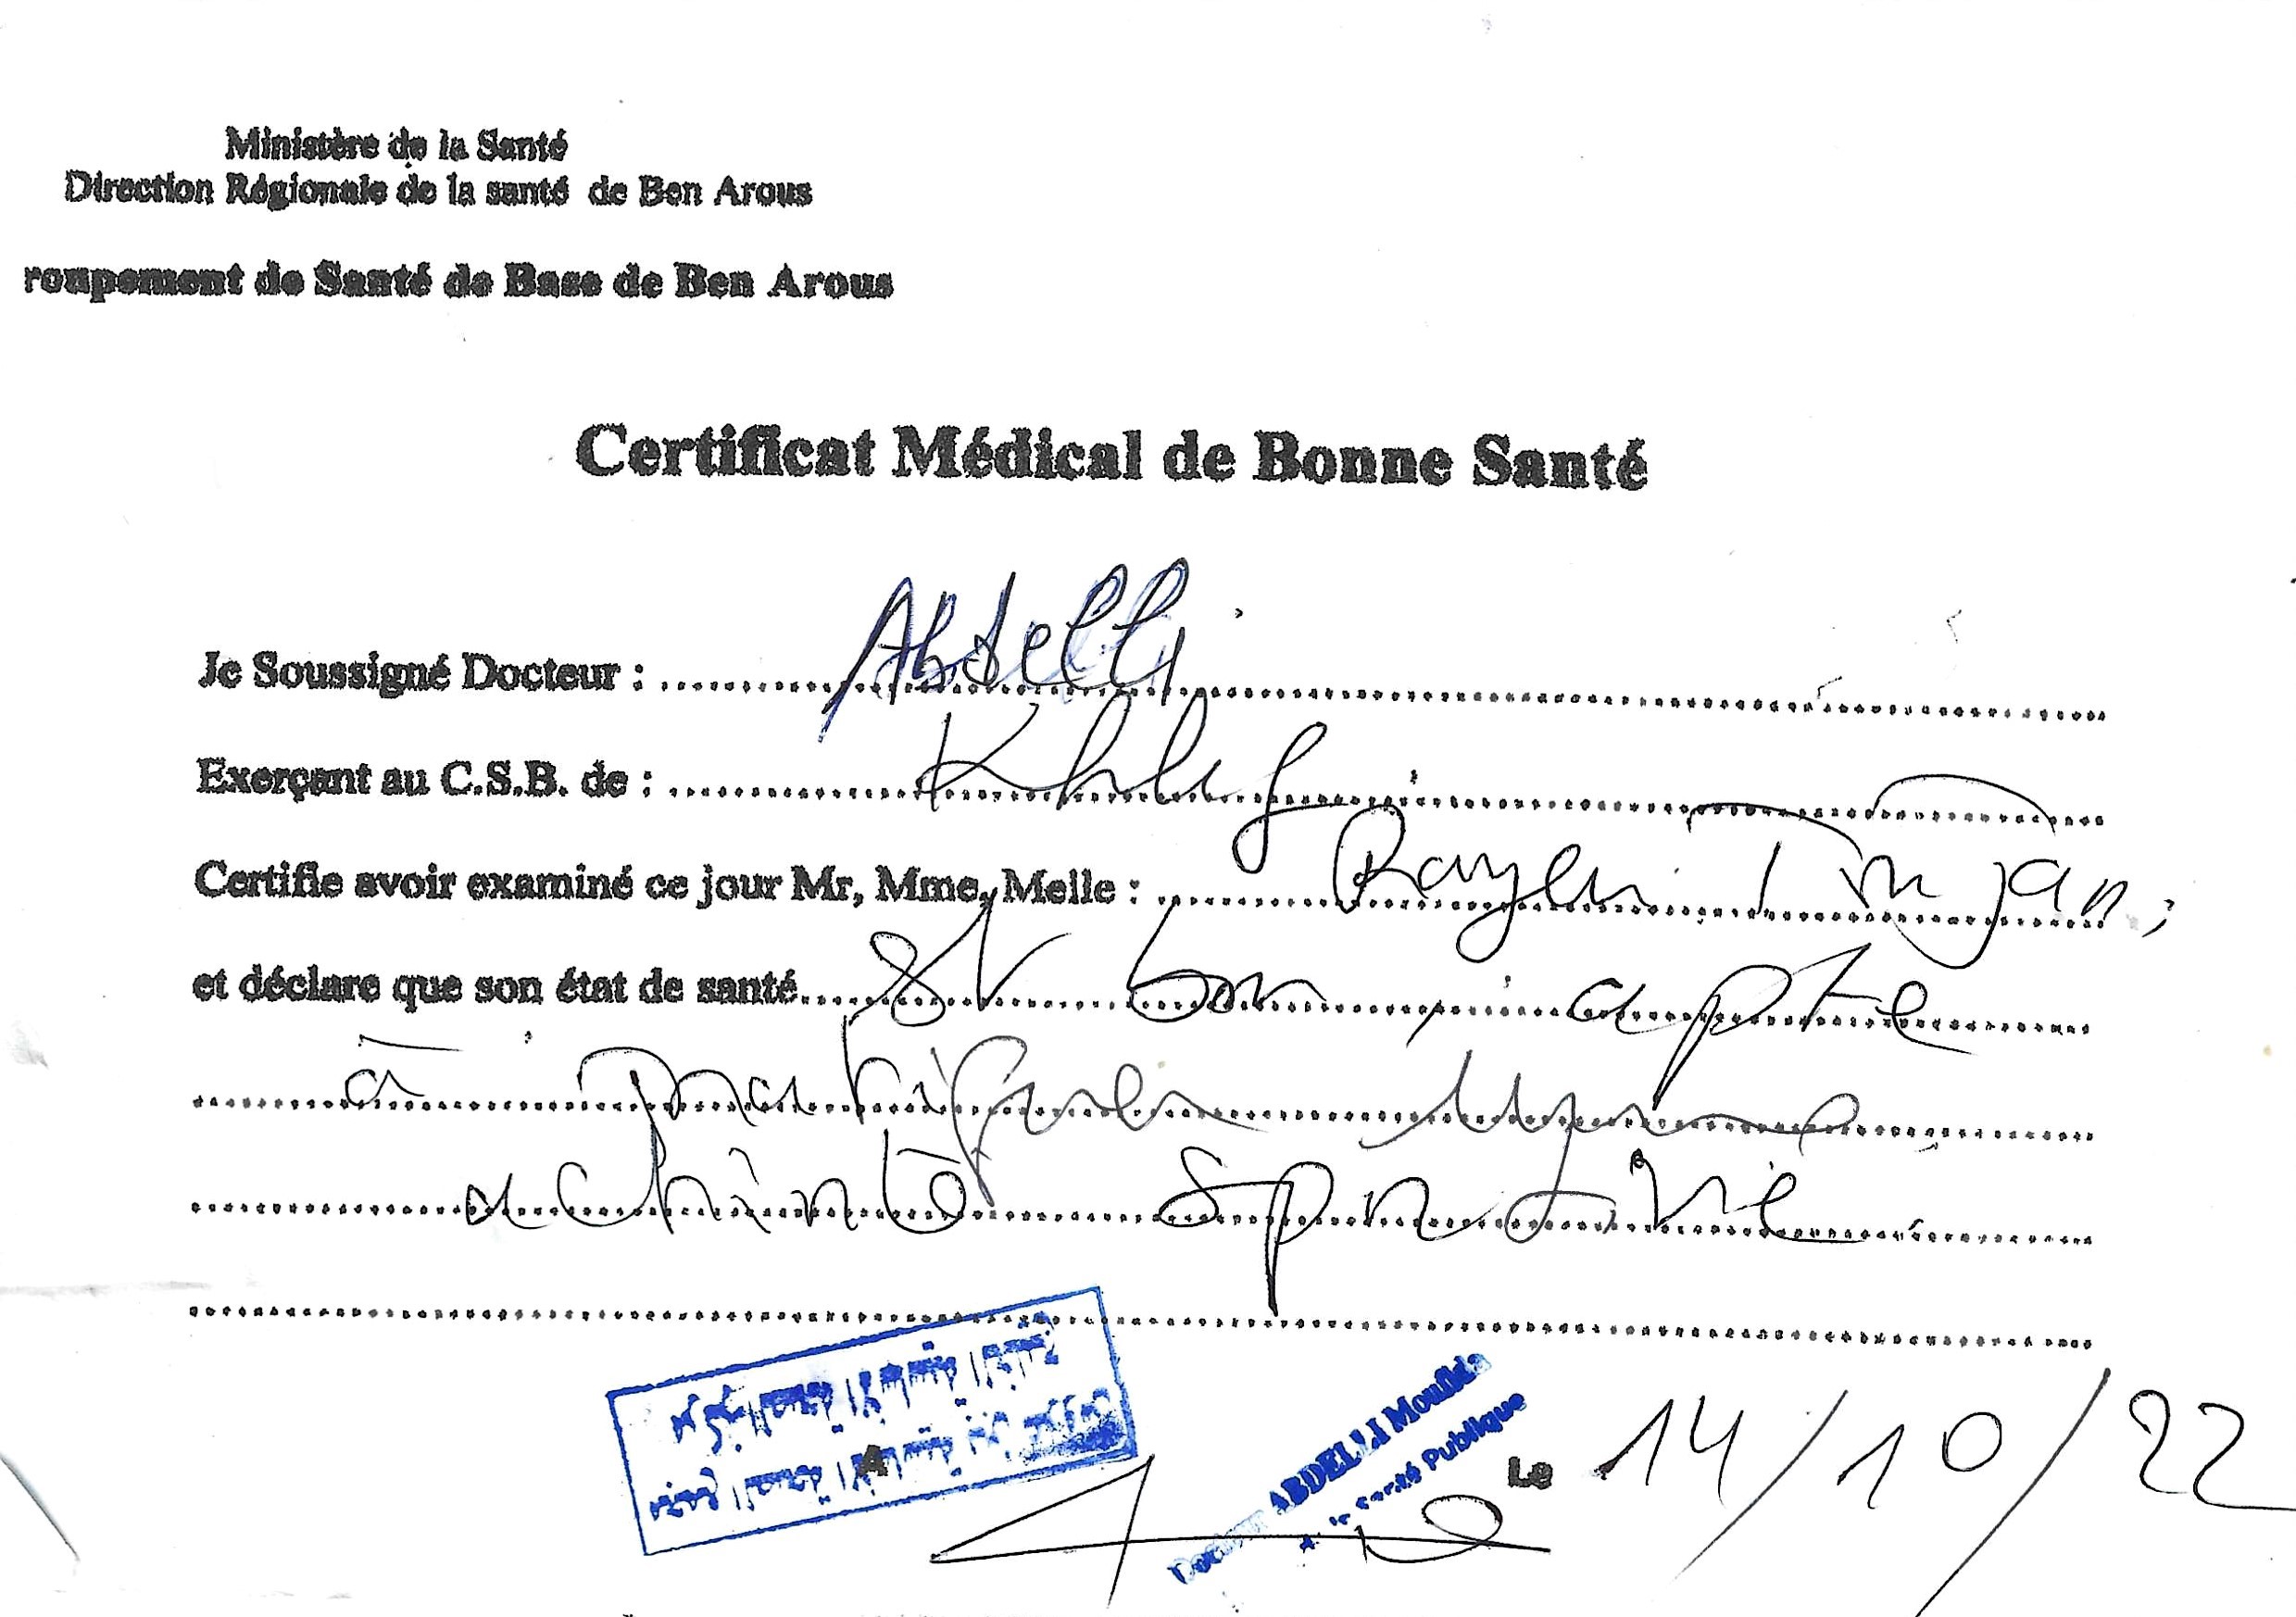 Ministère de la Santé
Direction Régionale de la santé de Ben Arous
roupement de Santé de Base de Ben Arous
Certificat Médical de Bonne Santé
Je Soussigné Docteur : Abdelli
Exerçant au C.S.B. de :
Certifie avoir examiné ce jour Mr, Mme, Melle : Rayen
et déclare que son état de santé est bon, apte
à pratiquer une
activité sportive
مركز الصحة الأساسية
مجمع الصحة الأساسية بن عروس
Docteur ABDELLI Moufida
Santé Publique
Le 14/10/22